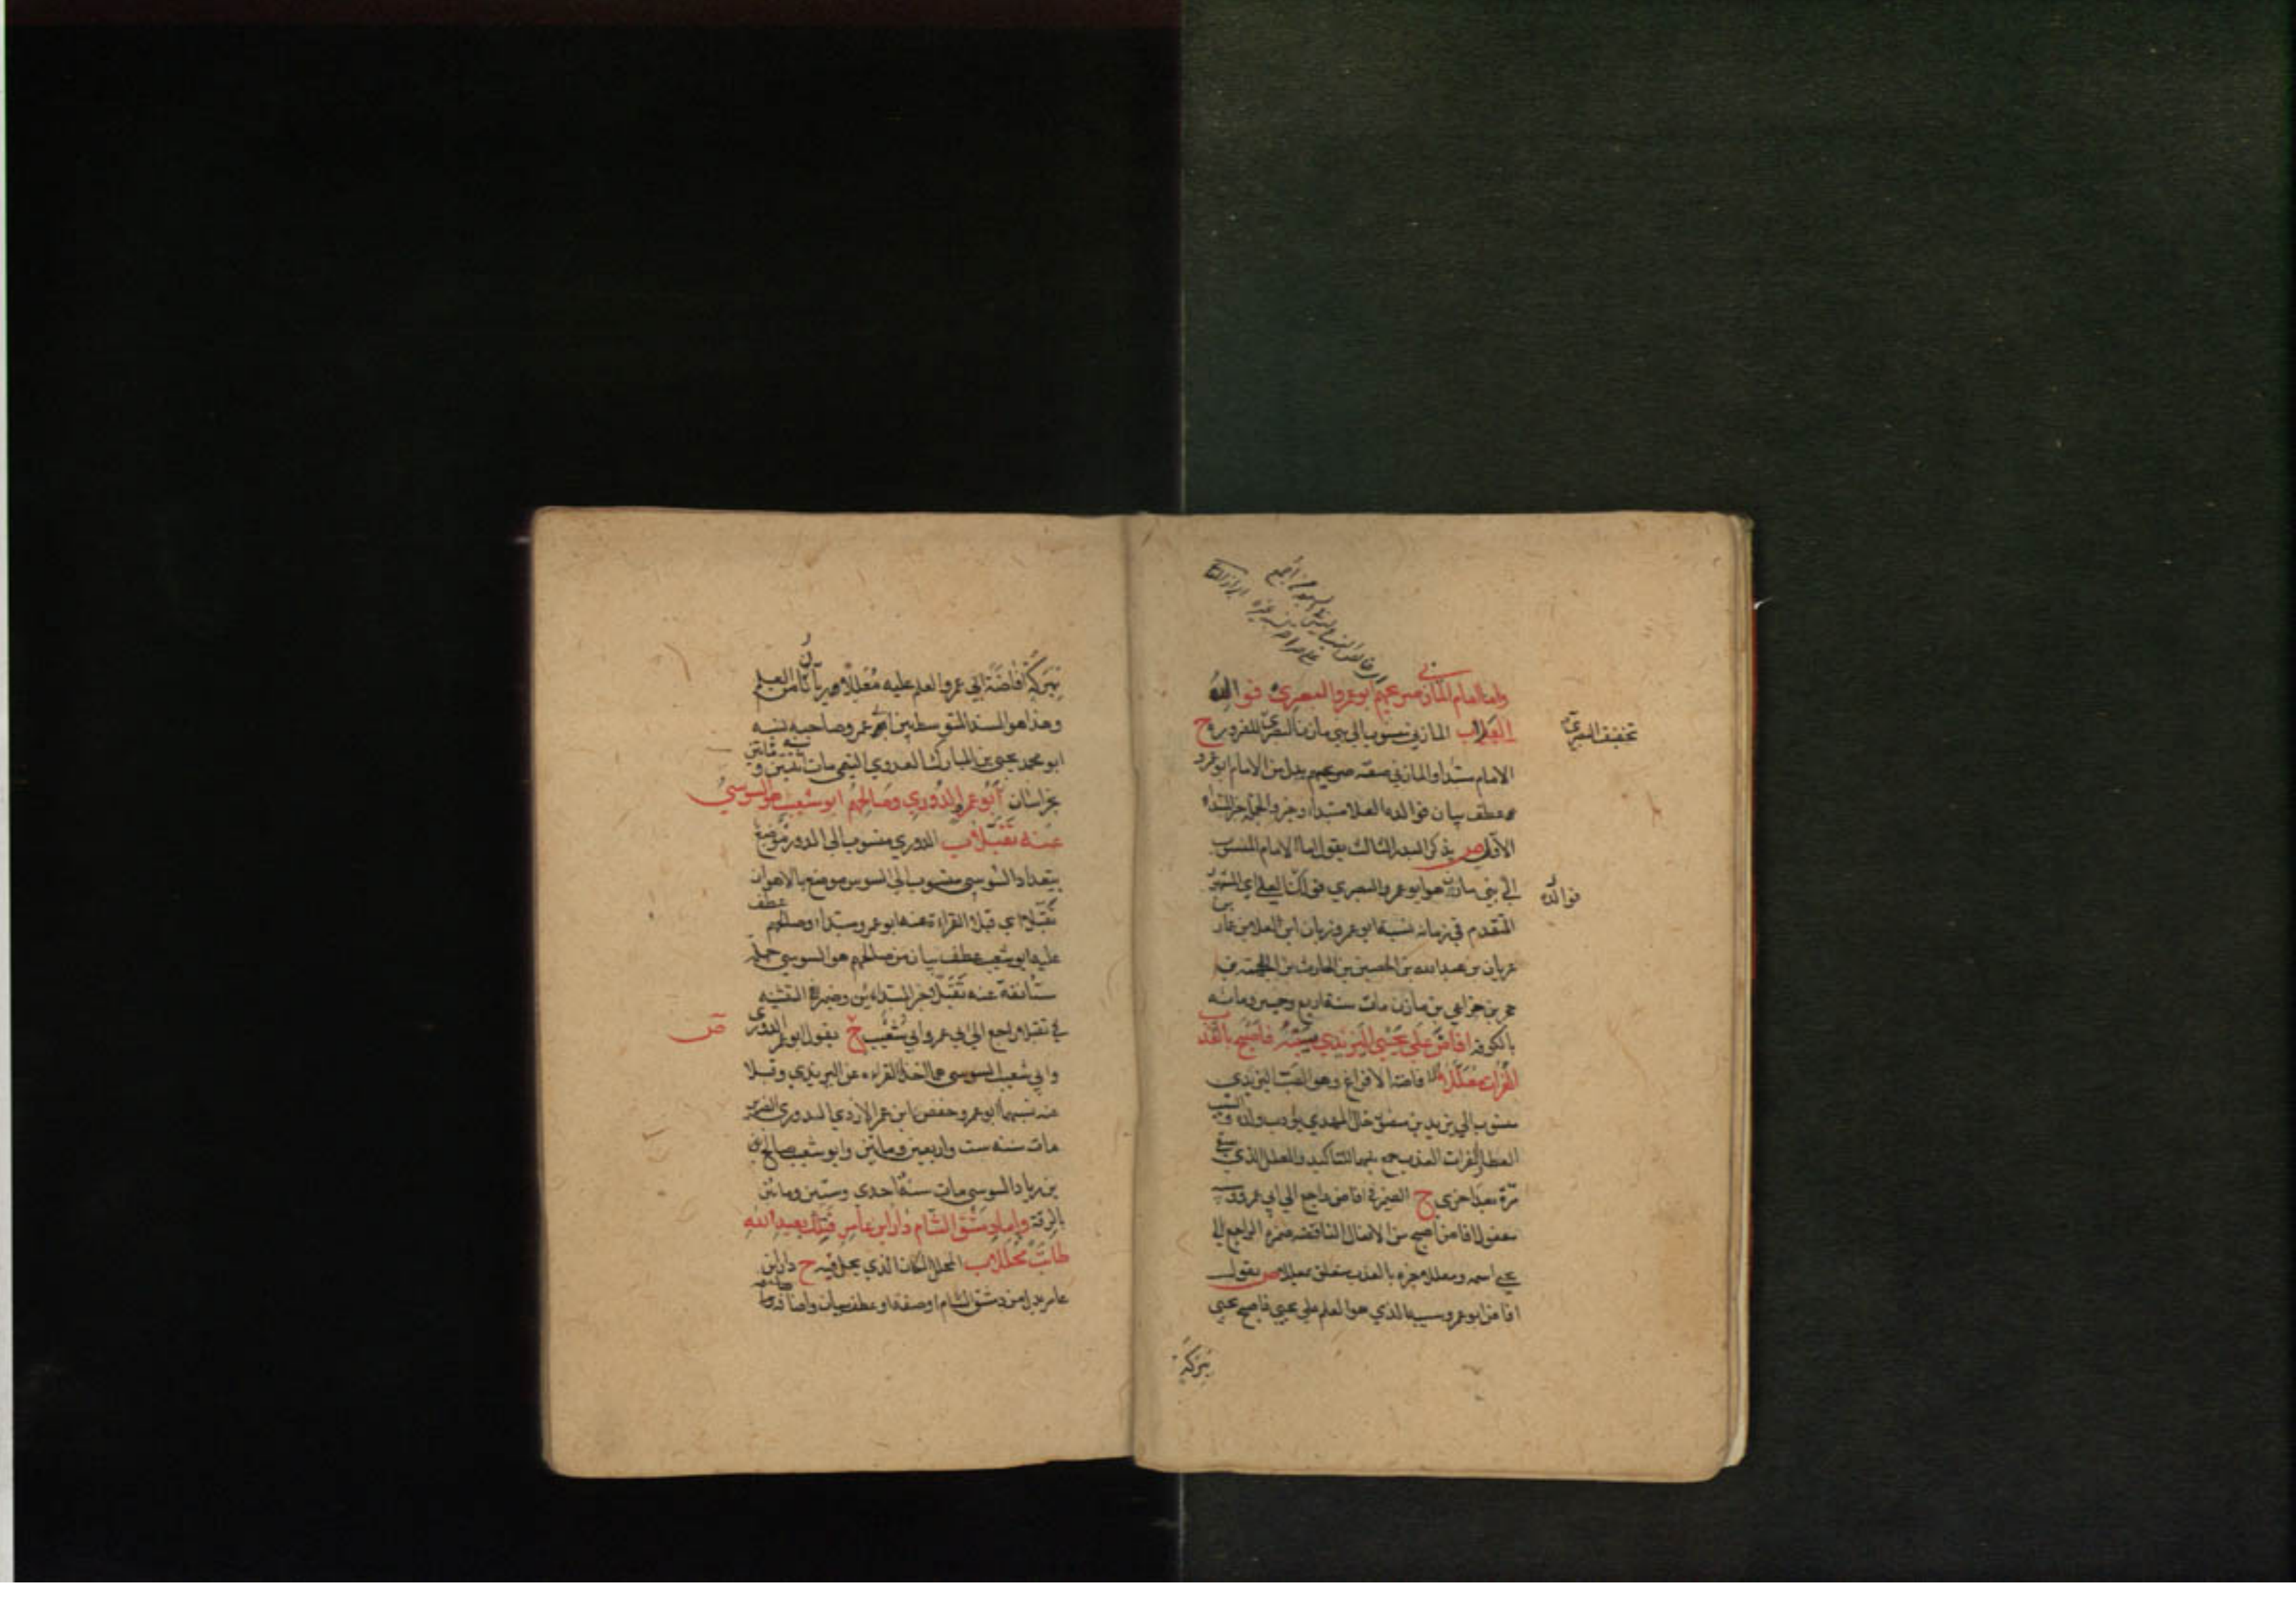 واما الامام المازني صريحهم ابو عمرو البصري فوالده
العلا ب المازني منسوب الى بني مازن البصري للفرد بره ح
تخفيف البصري
الامام مبتدا والمازني صفته صريحهم بدل من الامام ابو عمرو
عطف بيان فوالده العلا مبتداء وخبر والجملة خبر المبتداء
الاول ص يذكر البدر الثالث يقول اما الامام المنسوب
الى بني مازن هو ابو عمرو البصري فوالده العلا اي المشهور
فوالده
المتقدم في زمانه نسبه ابو عمرو زبان ابن العلا بن عمار
عريان بن عبد الله بن الحصين بن الحارث بن
حجر بن خزاعي بن مازن مات سنة اربع وخمسين ومائه
بالكوفه افاض على يحيى اليزيدي سيبه فاصبح بالعذب
الفرات معللا الافاضة الافراغ وهو الصب اليزيدي
منسوب الى يزيد بن منصور خال المهدي يؤدب ولده و السيب
العطا والفرات العذب جمع بينهما للتاكيد والمعلل الذي سقي
مرة بعد اخرى ح الضمير في افاض راجع الى ابي عمرو وسيبه
مفعول افاض اصبح من الافعال الناقصة ضميره الراجع الى
يحيى اسمه ومعللا خبره بالعذب متعلق بمعللا ص يقول
افاض ابو عمرو سيبه الذي هو العلم على يحيى فاصبح يحيى
ببركة
ببركة افاضة ابي عمرو العلم عليه معللا ريانا من العلم
وهذا هو السند المتوسط بين ابي عمرو وصاحبيه نسبه
ابو محمد يحيى بن المبارك العدوي التيمي مات سنة اثنتين و مائتين
بخراسان ابو عمر الدوري وصالحهم ابو شعيب هو السوسي
عنه تقبلا ب الدوري منسوب الى الدور موضع
ببغداد السوسي منسوب الى السوس موضع بالاهواز
تقبلا اي قبلا القراءة عنه ابو عمرو مبتداء وصالحهم عطف
عليه ابو شعيب عطف بيان من صالحهم هو السوسي جملة
مستأنفة عنه تقبلا خبر المبتداءين وضمير التثنيه
في تقبلا راجع الى ابي عمرو وابي شعيب ح يقول ابو عمر الدوري
ص
وابي شعيب السوسي هما اخذا القراءه عن اليزيدي وقبلا
عنه نسبهما ابو عمرو حفص ابن عمر الازدي الدوري الضرير
مات سنه ست واربعين ومائتين وابو شعيب صالح بن
بن زياد السوسي مات سنة احدى وستين ومائتين
بالرقة واما دمشق الشام دار ابن عامر فتلك بعبد الله
طابت محللا ب المحلل المكان الذي يحل فيه ح دار ابن
عامر بدل من دمشق الشام او صفة او عطف بيان واضافة